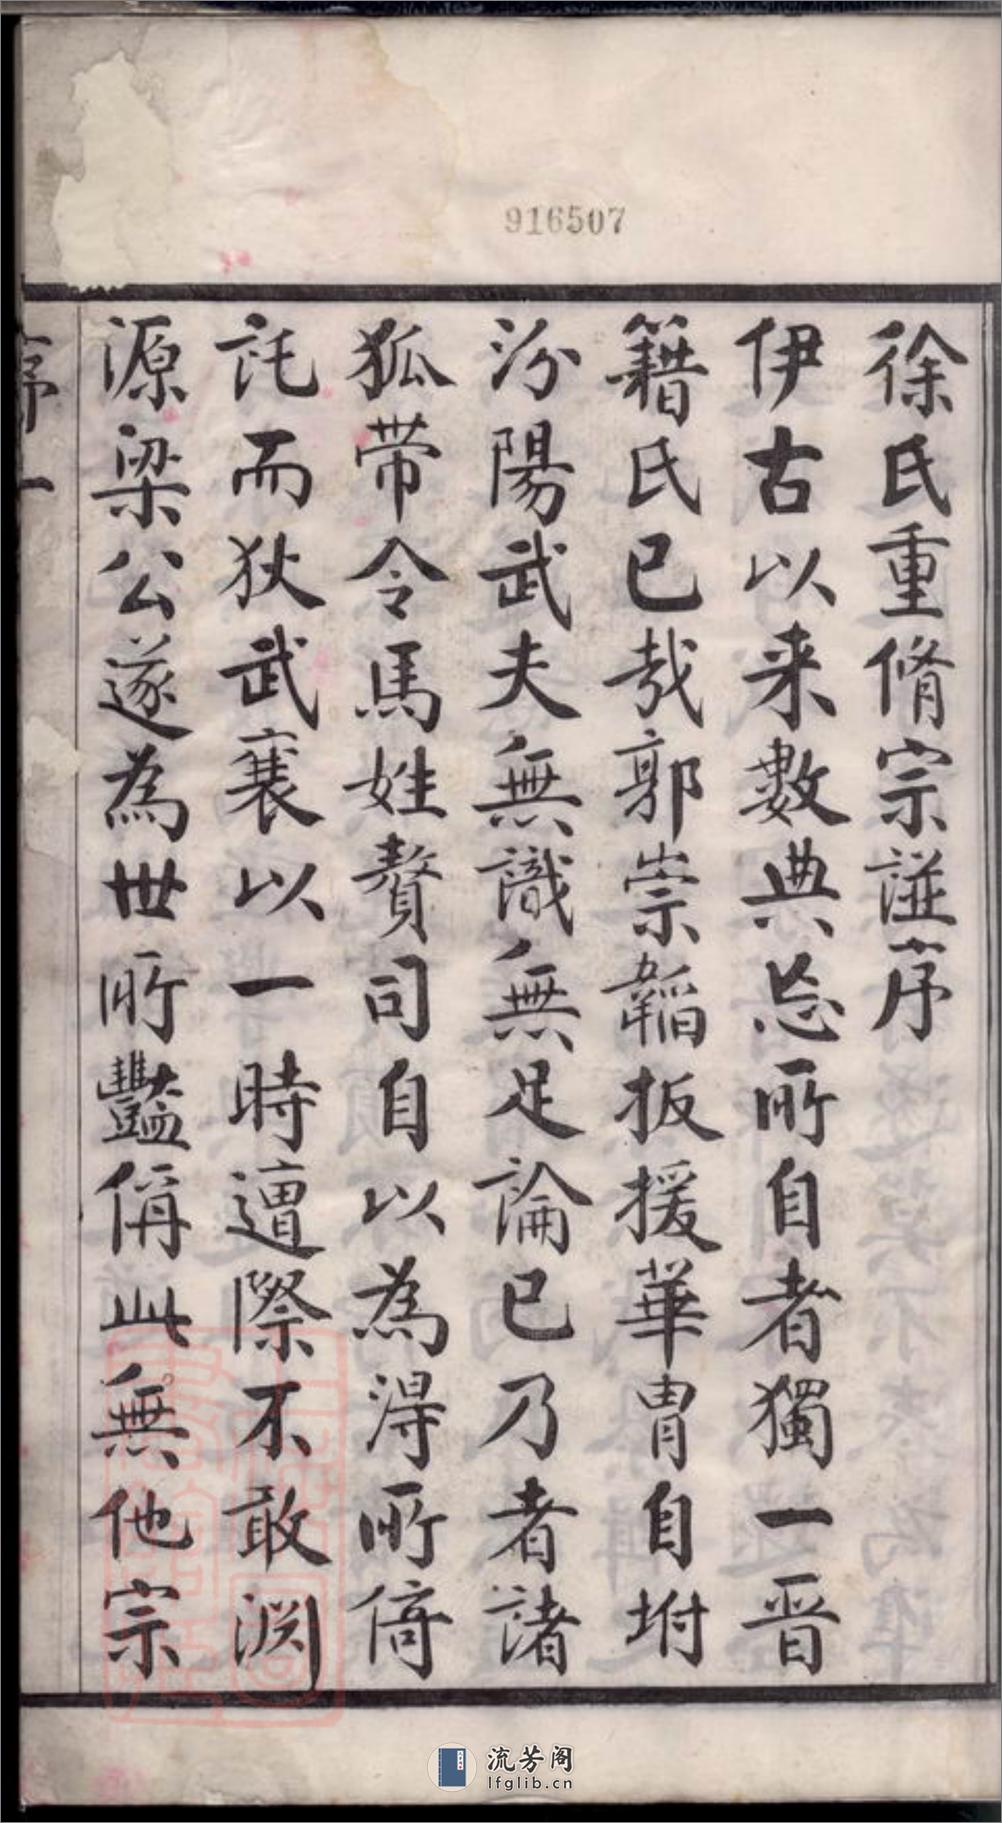 916507
徐氏重脩宗諩序
伊古以来數典忘所自者獨一晋
籍氏已哉郭崇韜扳援華胄自坿
汾陽武夫無識無足論已乃者諸
狐带令馬姓贅司自以為淂所倚
託而狄武襄以一時遭際不敢渊
源梁公遂為世所豔偁此無他宗
序一
流芳阁
lfglib.cn